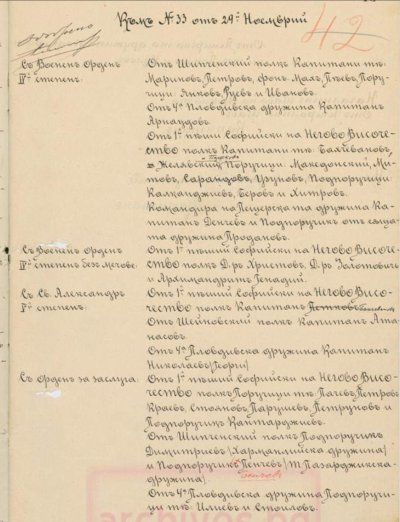 Къмъ № 33 отъ 29й Ноемврий
42
Съ Военен Орденъ
IVй степенъ.
Отъ Шипченский полкъ Капитани тѣ:
Мариновъ, Петровъ, фонъ Махъ, Пѣевъ, Пору-
чици: Янковъ, Гуевъ и Ивановъ.
Отъ 4а Пловдивска дружина Капитанъ
Арнаудовъ.
Отъ 1й пѣши Софийски на Негово Височе-
ство полкъ Капитани тѣ: Бахчевановъ,
Желявский, Поручици: Македонский, Ми-
товъ, Сарандовъ, Узуновъ, Подпоручици:
Калканджиевъ, Беровъ и Хитровъ.
Командира на Пещерска та дружина Ка-
питанъ Денчевъ и Подпоручикъ отъ съща-
та дружина Продановъ.
Съ Военен орденъ
IVй степенъ безъ мечове.
Отъ 1й пѣши Софийски на Негово Височе-
ство полкъ Д-ръ Христовъ, Д-ръ Золотовичъ
и Архимандритъ Генадий.
Съ Св. Александръ
Vй степенъ.
Отъ 1й пѣши Софийски на Негово Висо-
чество полкъ Капитанъ Петковъ
Отъ Шейновский полкъ Капитанъ Ата-
насовъ.
Отъ 4та Пловдивска дружина Капитанъ
Николаевъ (Георги)
Съ Орденъ за заслуга:
Отъ 1й пѣши Софийски на Негово Висо-
чество полкъ Поручици тѣ: Пачевъ, Петровъ
Краевъ, Стояновъ, Парушевъ, Петруновъ и
Подпоручикъ Кантарджиевъ.
Отъ Шипченский полкъ Подпоручикъ
Димитриевъ (Харманлийска дружина)
и Подпоручикъ Пенчевъ (Т. Пазарджикска
дружина).
Отъ 4та Пловдивска дружина Подпоручи-
ци тѣ: Илиевъ и Стоиловъ.
archives.bg